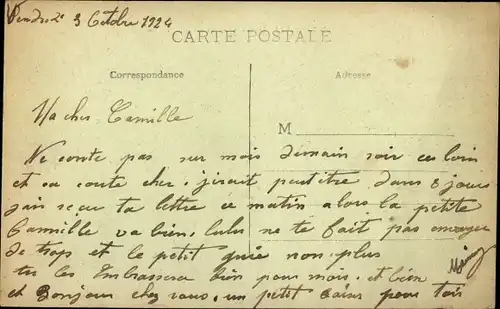 Vendredi 3 Octobre 1924
CARTE POSTALE
Correspondance
Adresse
Ma cher Camille
M
Ne conte pas sur mois demain soir ces loin
et sa coute cher. j'irait peut itre dans 8 jours
jais reçu ta lettre ce matin alors la petite
Cammille va bien, lulu ne te fait pas enrager
de trops et le petit guie non plus
tu les Embrassera bien pour mois. et bien
et Bonjour chez vous. un petit pour tois